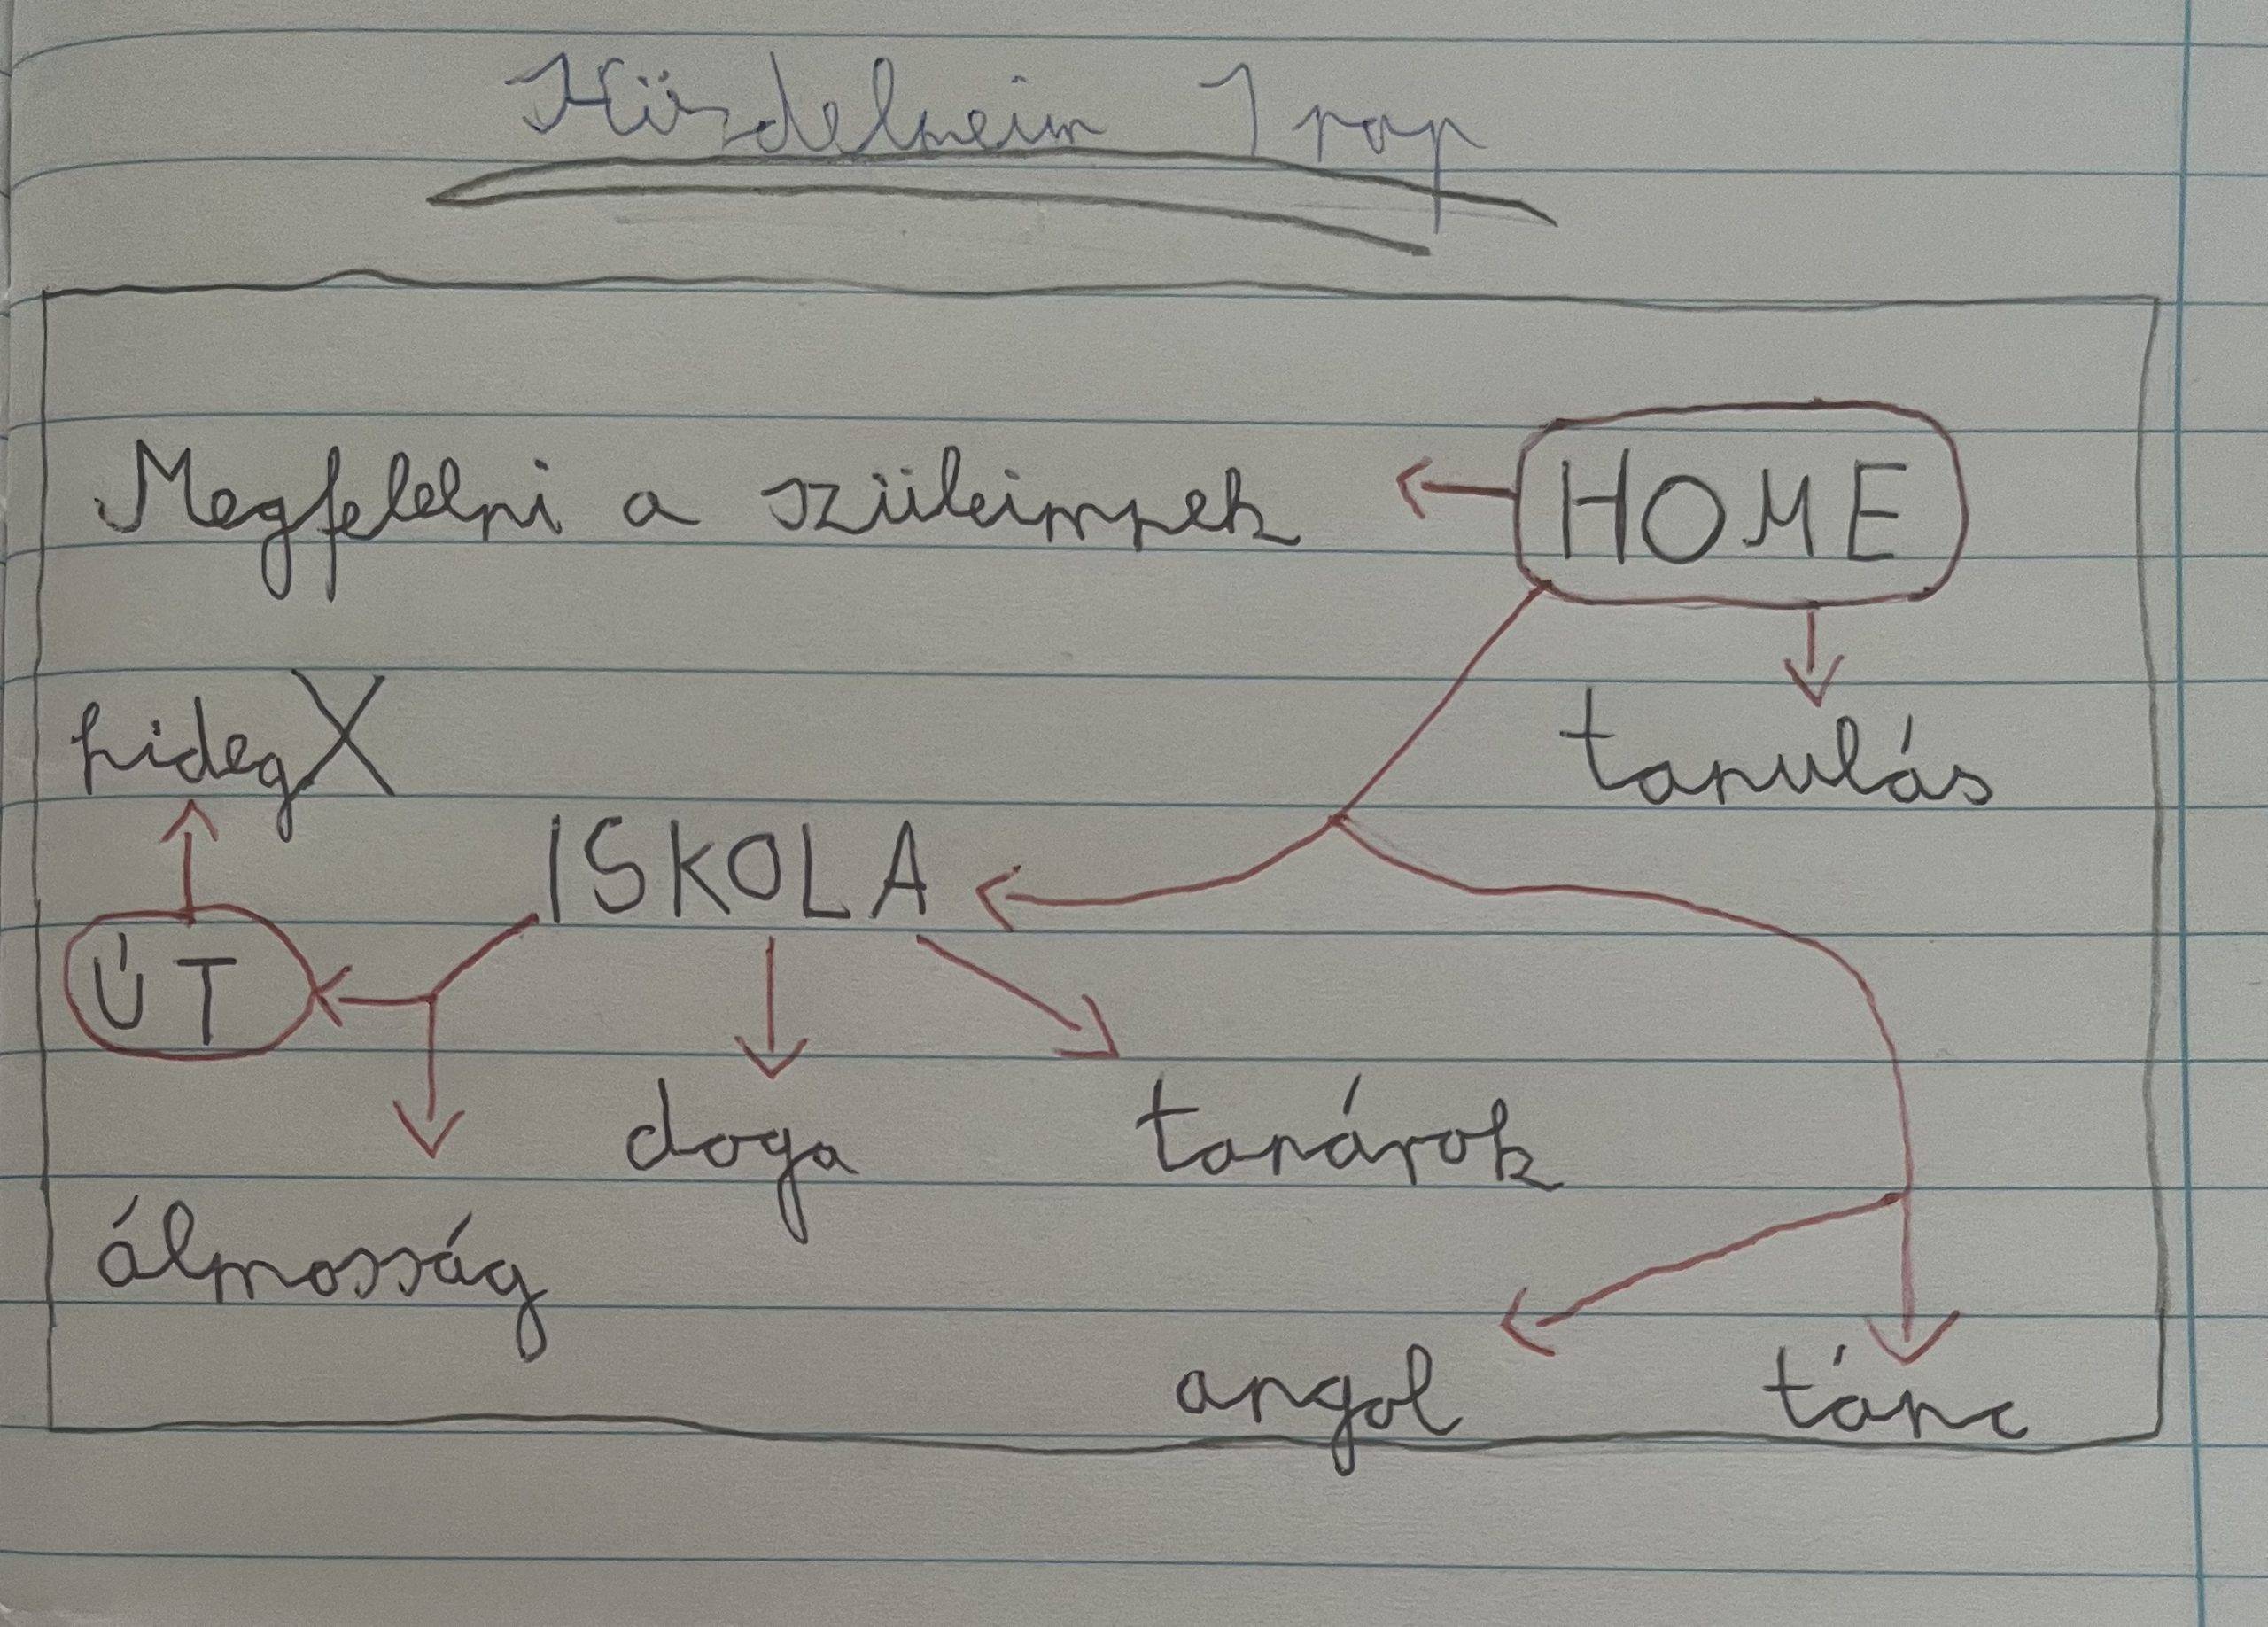 Küzdelmeim 1 nap
Megfelelni a szüleimnek HOME
hideg X tanulás
ISKOLA
ÚT
doga tanárok
álmosság
angol tánc